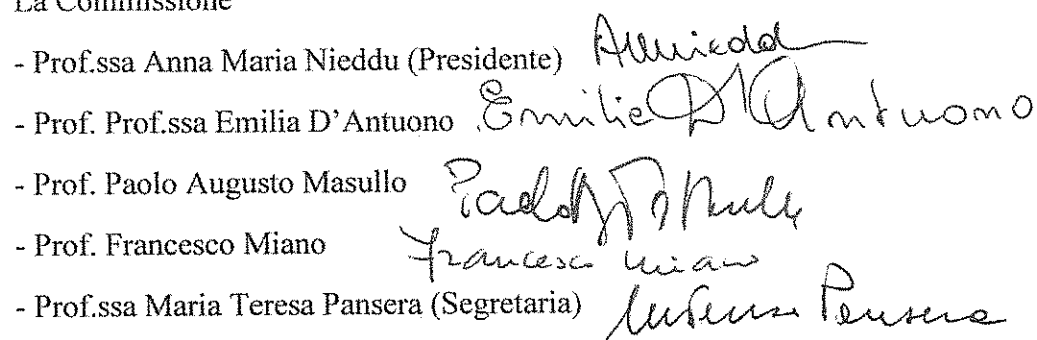 La Commissione
- Prof.ssa Anna Maria Nieddu (Presidente) AMNieddu
- Prof. Prof.ssa Emilia D'Antuono Emilia D'Antuono
- Prof. Paolo Augusto Masullo
- Prof. Francesco Miano Francesco Miano
- Prof.ssa Maria Teresa Pansera (Segretaria) Pansera